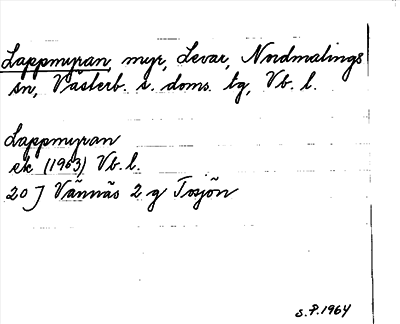 Lappmyran, myr, Levar, Nordmalings
sn, Västerb. s. doms. tg, Vb. l.
Lappmyran
ek (1963) Vb. l.
20 J Vännäs 2 g Tosjön
S.P. 1964